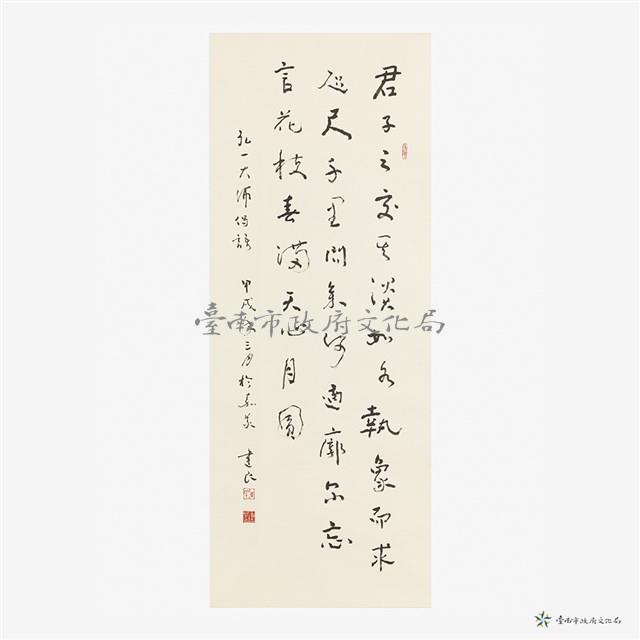 君子之交其淡如水執象而求
咫尺千里問余何適廓尔忘
言花枝春滿天心月圓
弘一大師偈語 甲戌 三月於嘉義 建民
臺南市政府文化局
臺南市政府文化局